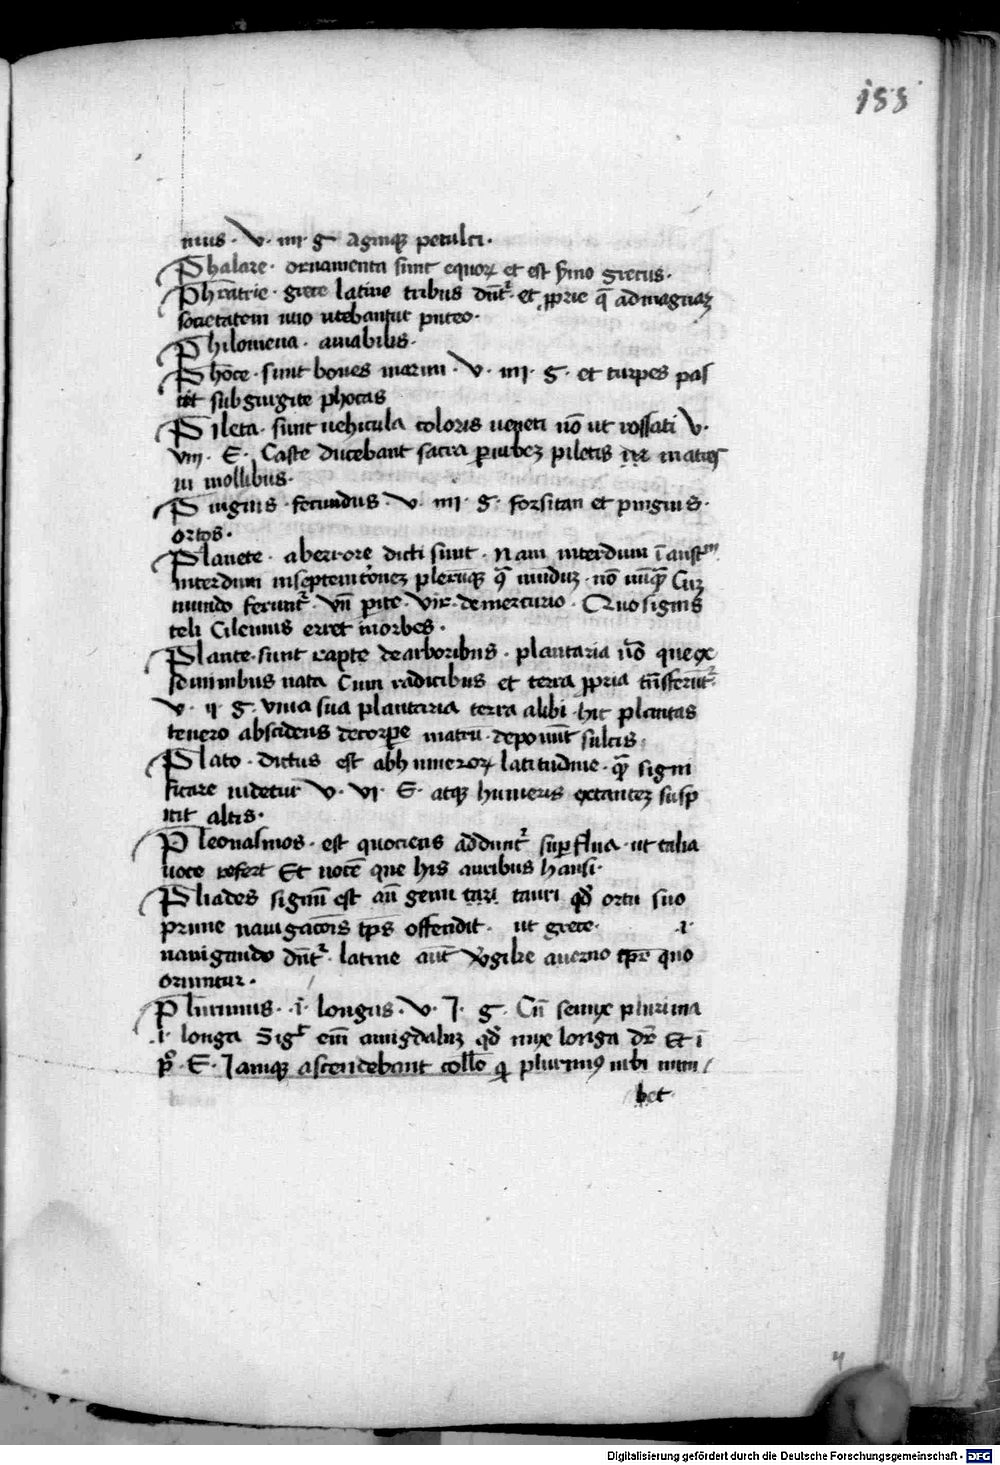 188
nius · v · iiii · g aginꝗ petulci ·
Phalare · ornamenta sunt equoꝝ et est ymo grecus ·
Phratrie · grece latine tribus dn̄t̉ · et ꝓprie q̄ ad magnaꝫ
societatem uno utebantur puteo ·
Philomena · amabilis ·
Phoce · sunt boues marini · v · iiii · g · et turpes pas
cit sub gurgite phocas
Pileta · sunt uehicula coloris ueneti nō ut rossati v ·
viii · E · Caste ducebant sacra ꝑ urbeꝫ piletis matres
in mollibus ·
Pinguis · fecundus · v · iiii · g · forsitan et pinguis ·
ortos ·
Planete · ab errore dicti sunt · Nam interdum ī austꝝ
interdum in septemtōneꝫ pleruꝗ ꝗ̄ munduꝫ · nō nunꝗ̄ Cuꝫ
mundo ferunt̉ · Vn̄ perite · Vir · de mercurio · Quo signis
celi Cilenius erret in orbes ·
Plante · sunt rapte de arboribus · plantaria ūo que ex
seminibus nata Cum radicibus et terra ꝓpria trāsferūt̉ ·
v · ii · g · viua sua plantaria terra alibi · hic plantas
tenero abscidens de corpore matrū · deponunt sulcis ·
Plato · dictus est ab humeroꝝ latitudine · ꝗ̄ signi
ficare uidetur v · vi · E · atꝗ humeris extanteꝫ susp
icit altis ·
Pleonasmos · est quociens addunt̉ superflua · ut talia
uoce refert Et uocē que his auribus hausi ·
Pliades signū est an̄ genu tauri qd̄ ortu suo
prime nauigacōis tp̄s ostendit · ut grece · i ·
nauigando dn̄t̉ · latine aut̄ v̉gilie a uerno tꝑe quo
oriuntur ·
Plurimus · i · longus · v · I · g · Cū se nux plurima
· i · longa Sig̉ em̄ amigdaluꝫ qd̄ nux longa dr̄ Et ī
pͦ · E · Iamꝗ ascendebant collē qui plurimꝰ urbi immi
bet ·
Digitalisierung gefördert durch die Deutsche Forschungsgemeinschaft - DFG